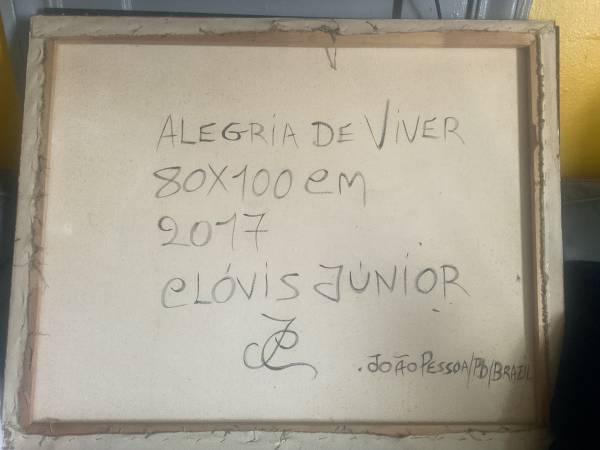 ALEGRIA DE VIVER
80X100 cm
2017
CLÓVIS JÚNIOR
JC
. JOÃO PESSOA/PB/BRAZIL